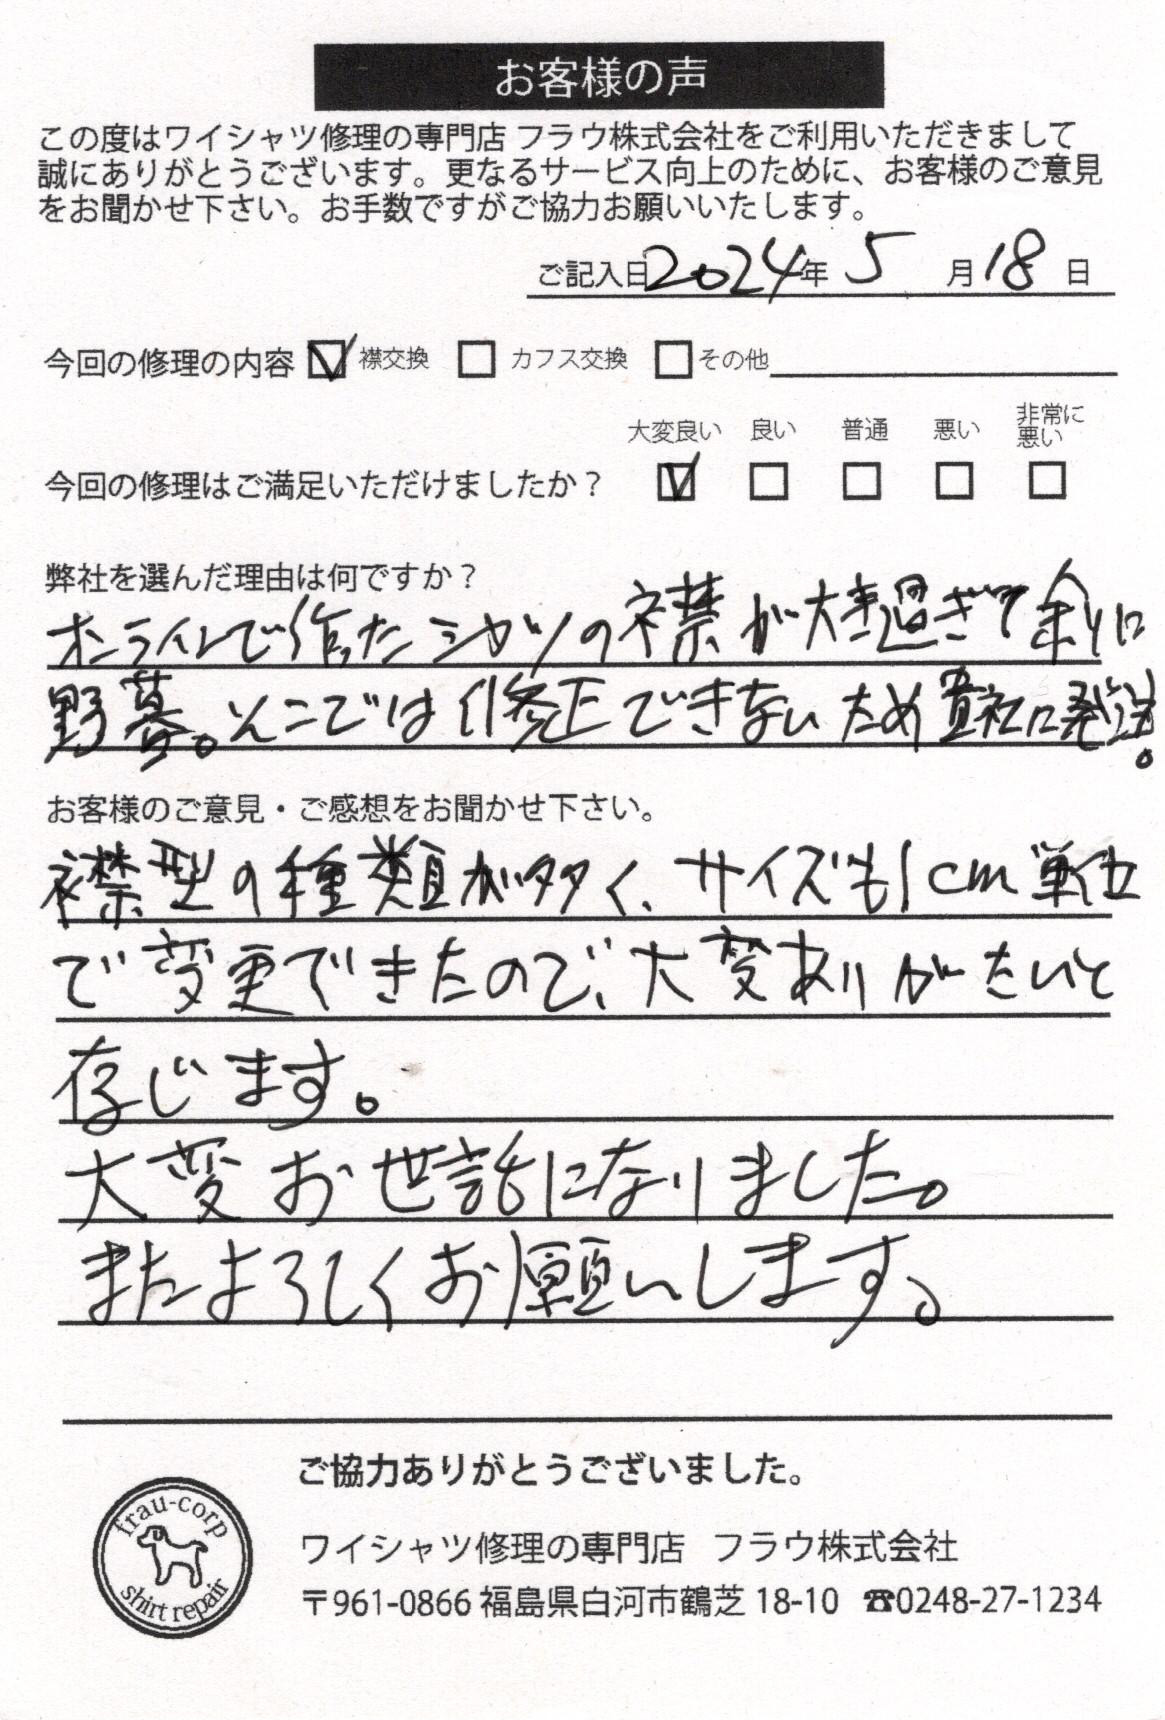 お客様の声
この度はワイシャツ修理の専門店 フラウ株式会社をご利用いただきまして
誠にありがとうございます。更なるサービス向上のために、お客様のご意見
をお聞かせ下さい。お手数ですがご協力お願いいたします。
ご記入日2024年 5 月18 日
今回の修理の内容 襟交換 カフス交換 その他
大変良い 良い 普通 悪い 非常に悪い
今回の修理はご満足いただけましたか？
弊社を選んだ理由は何ですか？
オンラインで作ったシャツの襟が大き過ぎて余りに
野暮。そこでは修正できないため貴社に発送。
お客様のご意見・ご感想をお聞かせ下さい。
襟型の種類が多く、サイズも1cm単位
で変更できたので、大変ありがたいと
存じます。
大変お世話になりました。
またよろしくお願いします。
ご協力ありがとうございました。
frau-corp
shirt repair
ワイシャツ修理の専門店 フラウ株式会社
〒961-0866 福島県白河市鶴芝 18-10 ☎0248-27-1234